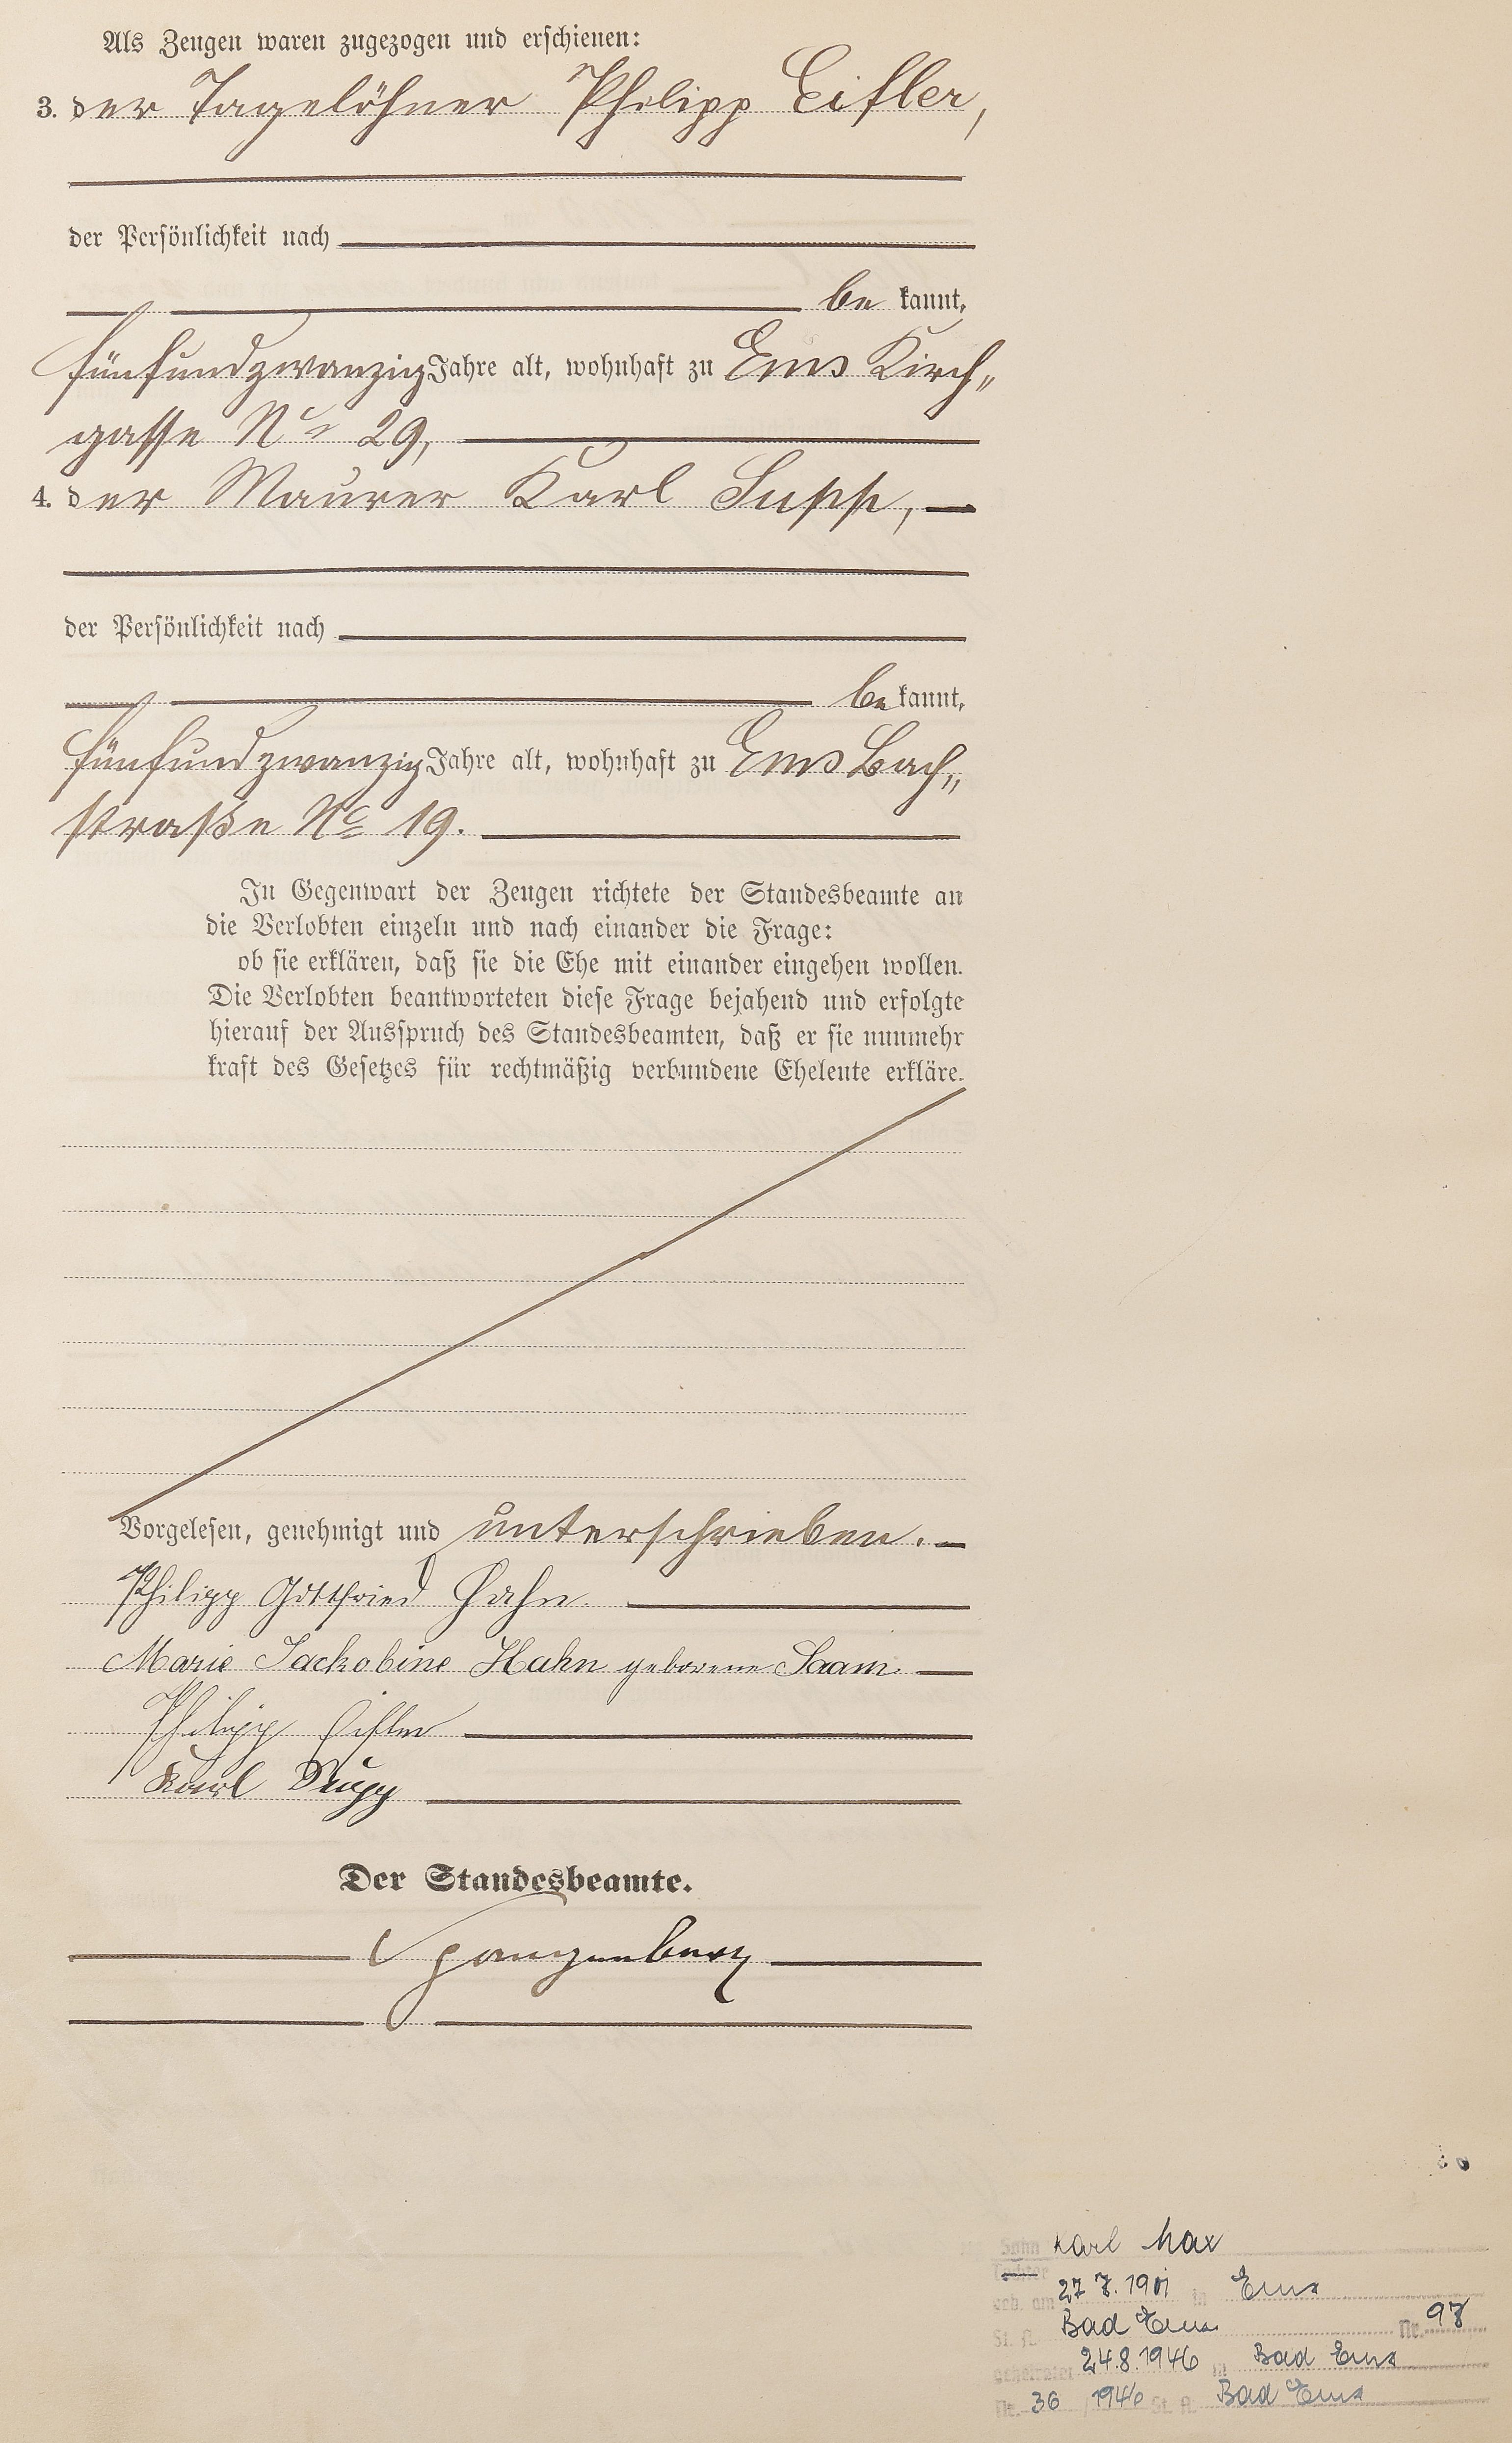 Als Zeugen waren zugezogen und erschienen:
3. der Tagelöhner Philipp Eifler,
der Persönlichkeit nach
be kannt,
fünfundzwanzig Jahre alt, wohnhaft zu Ems Kirch„
gasse No 29,
4. der Maurer Karl Supp,
der Persönlichkeit nach
be kannt,
fünfundzwanzig Jahre alt, wohnhaft zu Ems Bach„
straße No 19.
In Gegenwart der Zeugen richtete der Standesbeamte an
die Verlobten einzeln und nach einander die Frage:
ob sie erklären, daß sie die Ehe mit einander eingehen wollen.
Die Verlobten beantworteten diese Frage bejahend und erfolgte
hierauf der Ausspruch des Standesbeamten, daß er sie nunmehr
kraft des Gesetzes für rechtmäßig verbundene Eheleute erkläre.
Vorgelesen, genehmigt und unterschrieben.
Philipp Gottfried Hahn
Marie Jackobine Hahn geborene Saam.
Philipp Eifler
Karl Supp
Der Standesbeamte.
Spangenberg
Sohn Karl Max
Tochter
geb. am 27.7.1901 in Ems
St. A. Bad Ems Nr. 97
geheiratet 24.8.1946 in Bad Ems
Nr. 36 / 1946 St. A. Bad Ems